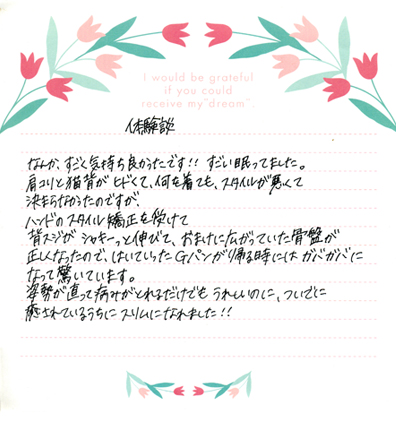 I would be grateful
if you could
receive my "dream".
体験談
なんか、すごく気持ち良かったです!! すごい眠ってました。
肩コリと猫背がヒドくて、何を着ても、スタイルが悪くて
決まらなかったのですが、
ハンドのスタイル矯正を受けて
背スジがシャキーっと伸びて、おまけに広がっていた骨盤が
正しくなったので、はいていったGパンが帰る時にはガバガバに
なって驚いています。
姿勢が直って痛みがとれるだけでもうれしいのに、ついでに
癒されているうちにスリムになれました!!